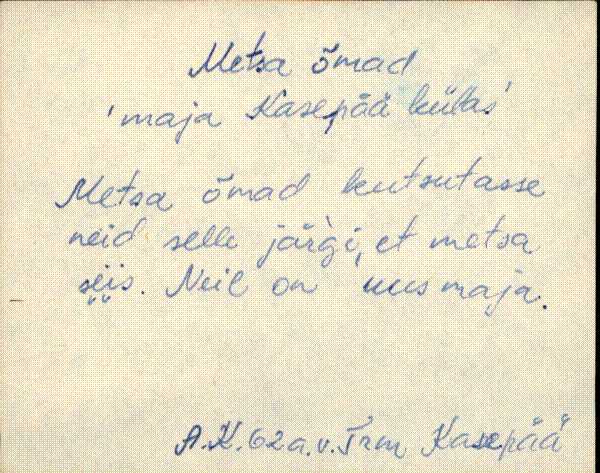 Metsa õmad
'maja Kasepää külas'
Metsa õmad kutsutasse
neid selle järgi, et metsa
sẹịs. Neil on 'uus maja.
A.K. 62 a.v. Trm Kasepää